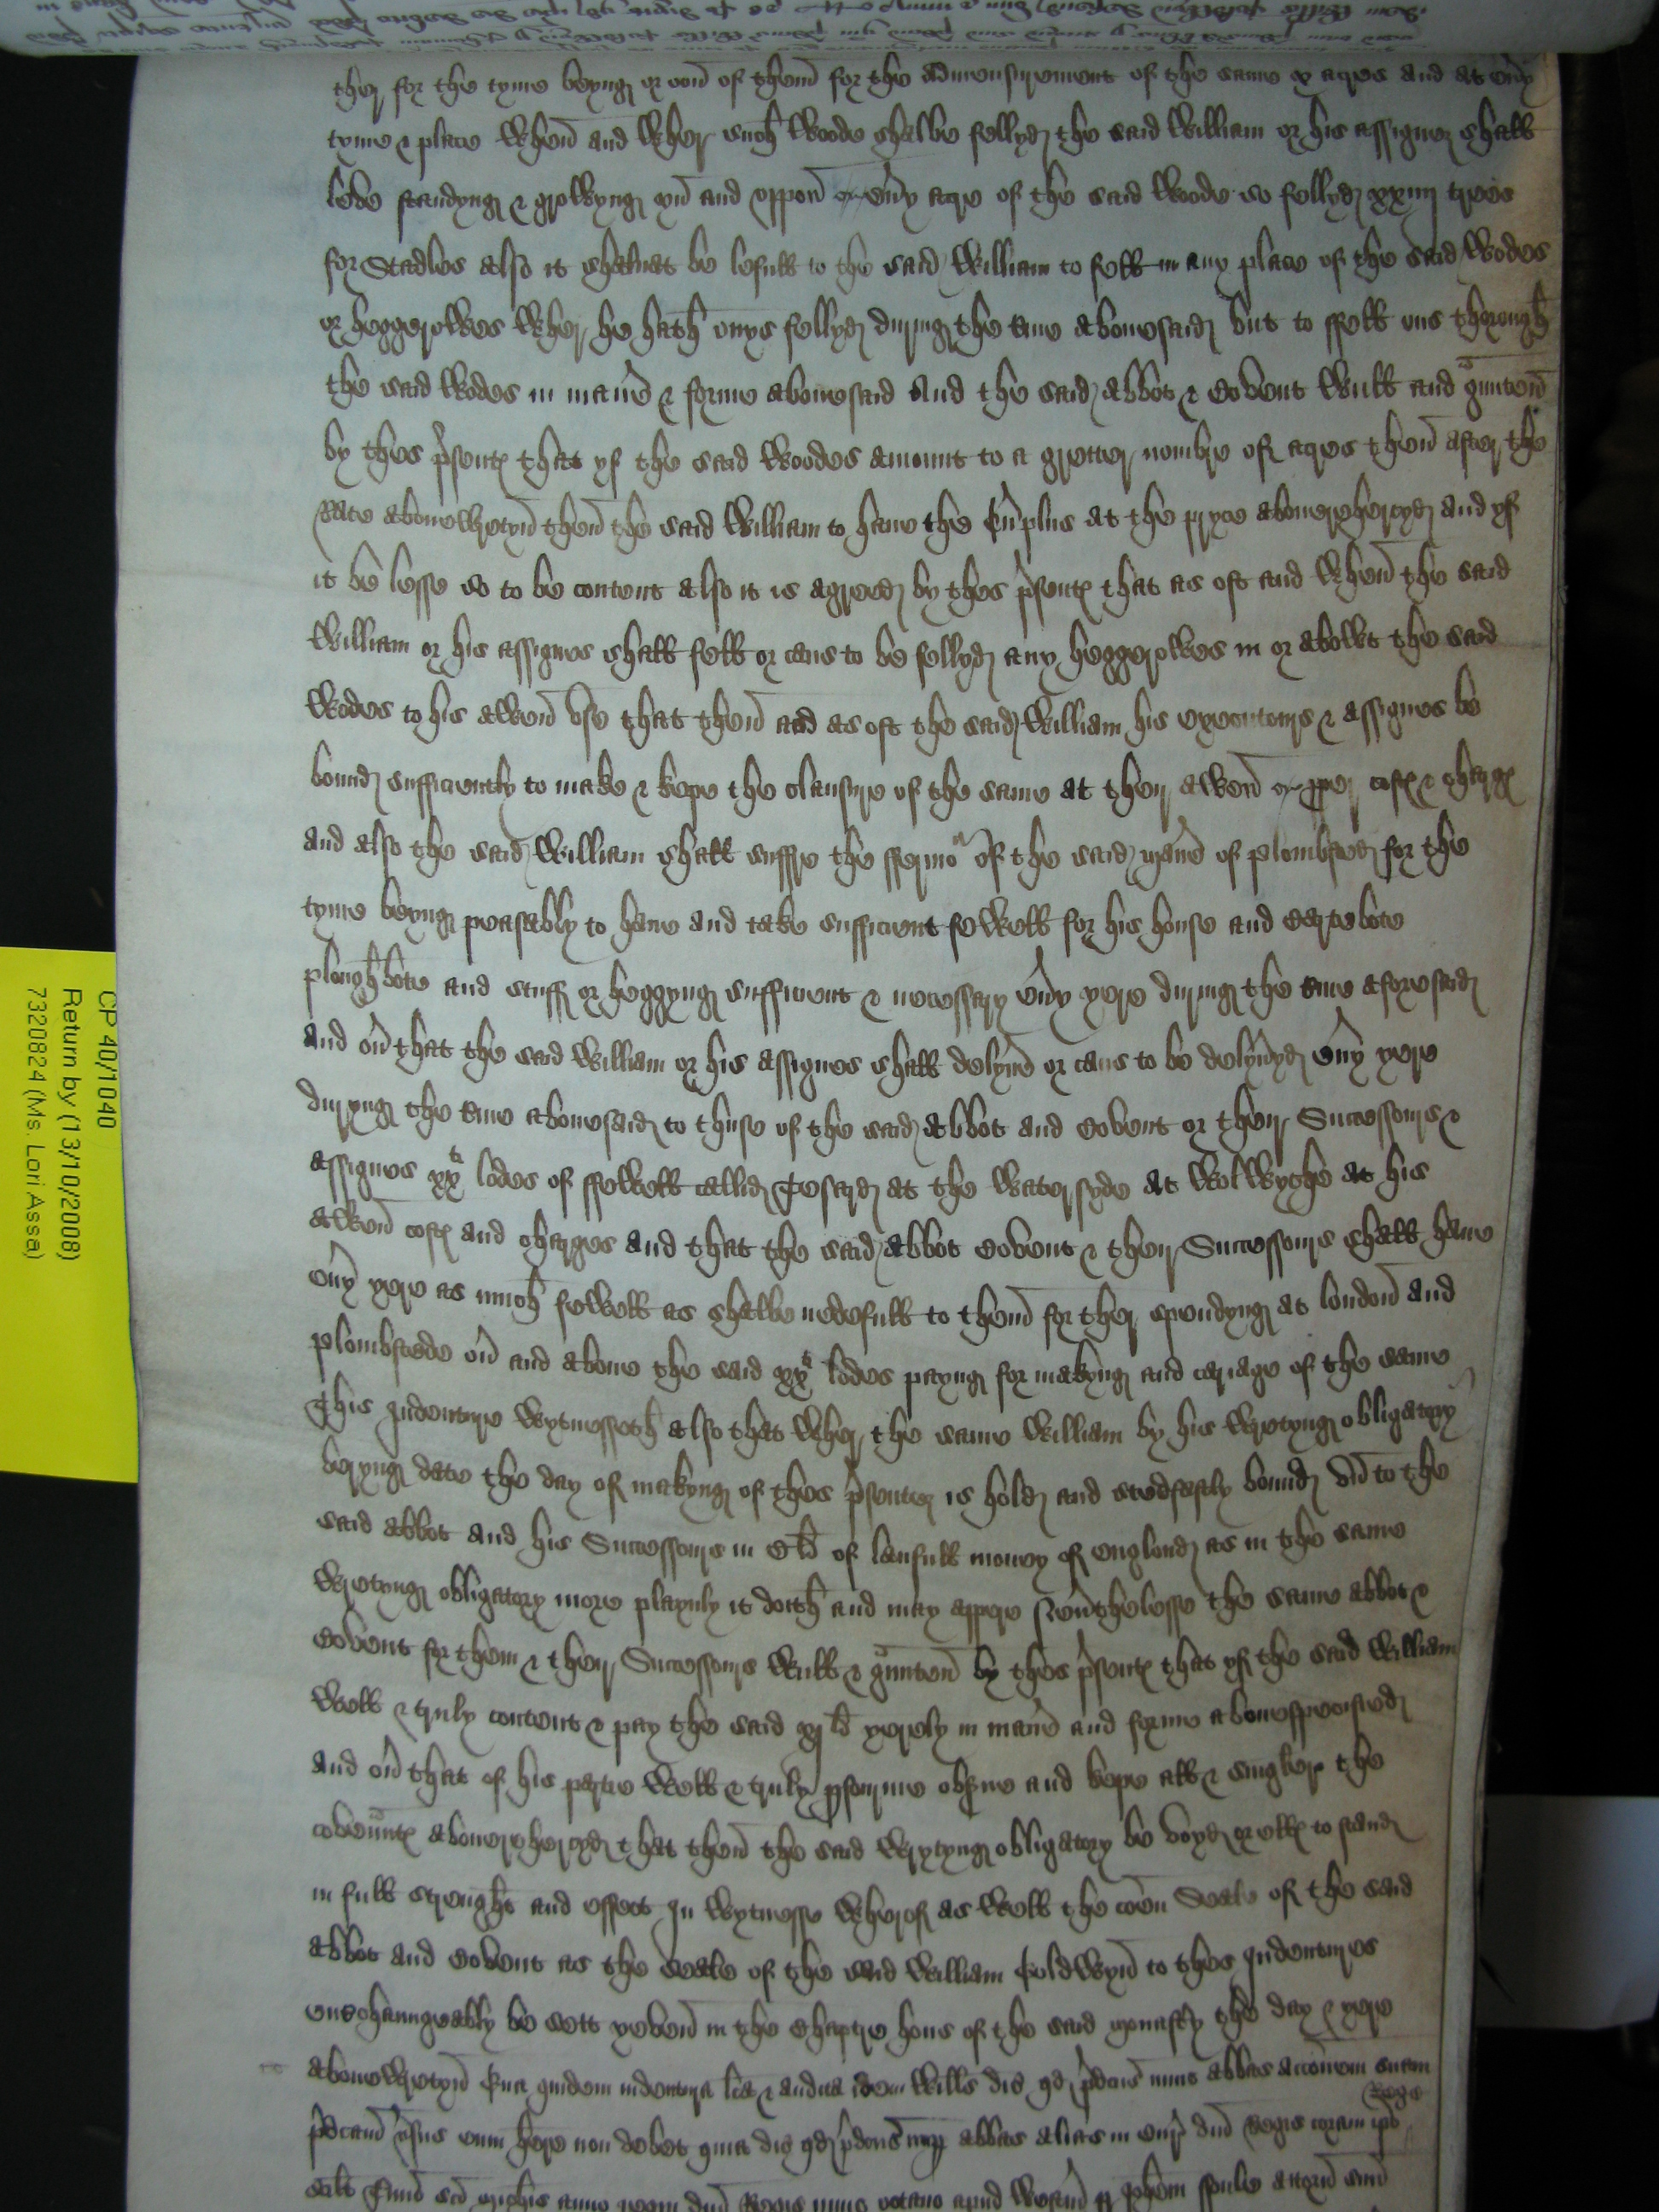 ther for the tyme beyng or oon of them for the admensurement of the same x acres and at eny
tyme & place when and wher such Woode shalbe fellyd the said William or his assignes shall
leve standyng & growyng yn and uppon eny acre of the said Woode so fellyd xxiiij trees
for Stadles also it shalnat be lefull to the said William to fell in any place of the said Wodes
or heggerowes Wher he hath onys fellyd during the time abovesaid but to ffell ons thorough
the said Wodes in maner & forme abovesaid And the said abbot & Covent Wull and graunten
by thes presentes that yf the said Woodes amount to a gretter nombre of acres then after the
Rate abovewretyn then the said William to have the surplus at the pryce aboverehercyd and yf
it be lesse so to be content also it is agreed by thes presentes that as oft and When the said
William or his assignes shall fell or caus to be fellyd any heggerowes in or abowt the said
Wodes to his awen Use that then and as oft the said William his executours & assignes be
bound sufficiently to make & kepe the clausure of the same at their awen proper costes & charges
and also the said William shall suffre the ffermor of the said maner of Plombsted for the
tyme beyng peasably to have and take sufficient fewell for his house and Cartebote
ploughbote and stuff or heggyng sufficient & necessary every yere during the time aforesaid
And over that the said William or his assignes shall delyver or caus to be delyveryd every yere
duryng the time abovesaid to thuse of the said abbot and Covent or their Successours &
assignes xxti lodes of ffewell callid Tosard at the Watersyde at Wolwythe at his
awen costes and charges and that the said abbot Covent & their Successours shall have
every yere as much fewell as shalbe nedefull to them for ther spendyng at london and
Plombstede over and above the said xxti lodes payng for makyng and cariage of the same
This Indenture Wytnesseth also that Wher the same William by his Wretyng obligatory
beryng date the day of makyng of thes presentes is hold and stedfastly bound unto the
said abbot and his Successours in C li of laufull money of england as in the same
Wretyng obligatory more playnly it doith and may appere Neverthelesse the same abbot &
Covent for them & their Successours Wull & graunten by thes presentes that yf the said William
Well & truly content & pay the said xj li yerely in maner and forme abovespecified
and over that of his partie Well & truly performe observe and kepe all & singler the
covenuntes aboverehercyd that then the said Wrytyng obligatory be voyd or elles to stand
in full strenght and effect In Wytnesse Wherof as Well the comen Seale of the said
abbot and Covent as the seale of the said William Coldwyn to thes Indentures
entrechaungeably be sett yeven in the Chaptre hous of the said monastery the day & yere
abovewretyn Qua quidem indentura lecta & audita idem Willelmus dicit quod predictus nunc abbas accionem suam
predictam versus eum habere non debet quia dicit quod predictus nunc abbas alias in Curia domini Regis coram ipso Rege
scilicet anno regni domini Regis nunc octavo apud attornatum suum
CP 40/1040
Return by (13/10/2008)
7320824 (Ms. Lori Assa)